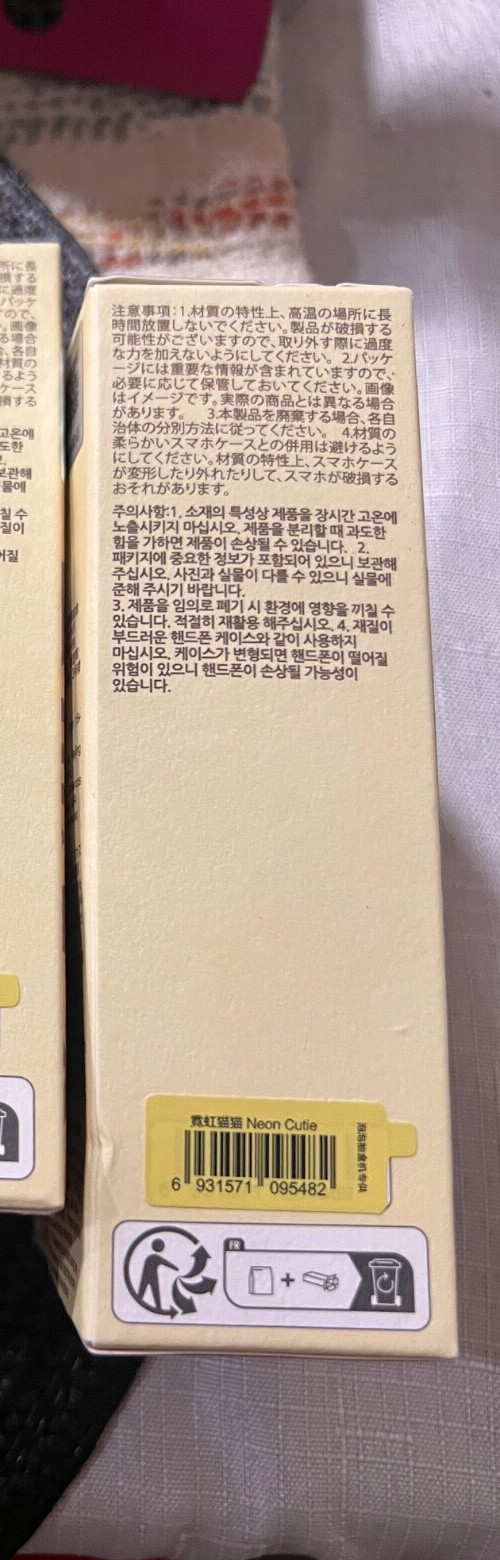 注意事項:1.材質の特性上、高温の場所に長
時間放置しないでください。製品が破損する
可能性がございますので、取り外す際に過度
な力を加えないようにしてください。 2.パッケ
ージには重要な情報が含まれていますので、
必要に応じて保管しておいてください。画像
はイメージです。実際の商品とは異なる場合
があります。 3.本製品を廃棄する場合、各自
治体の分別方法に従ってください。 4.材質の
柔らかいスマホケースとの併用は避けるよう
にしてください。材質の特性上、スマホケース
が変形したり外れたりして、スマホが破損する
おそれがあります。
주의사항:1. 소재의 특성상 제품을 장시간 고온에
노출시키지 마십시오. 제품을 분리할 때 과도한
힘을 가하면 제품이 손상될 수 있습니다. 2.
패키지에 중요한 정보가 포함되어 있으니 보관해
주십시오. 사진과 실물이 다를 수 있으니 실물에
준해 주시기 바랍니다.
3. 제품을 임의로 폐기 시 환경에 영향을 끼칠 수
있습니다. 적절히 재활용 해주십시오. 4. 재질이
부드러운 핸드폰 케이스와 같이 사용하지
마십시오. 케이스가 변형되면 핸드폰이 떨어질
위험이 있으니 핸드폰이 손상될 가능성이
있습니다.
霓虹猫猫 Neon Cutie
6 931571 095482
FR